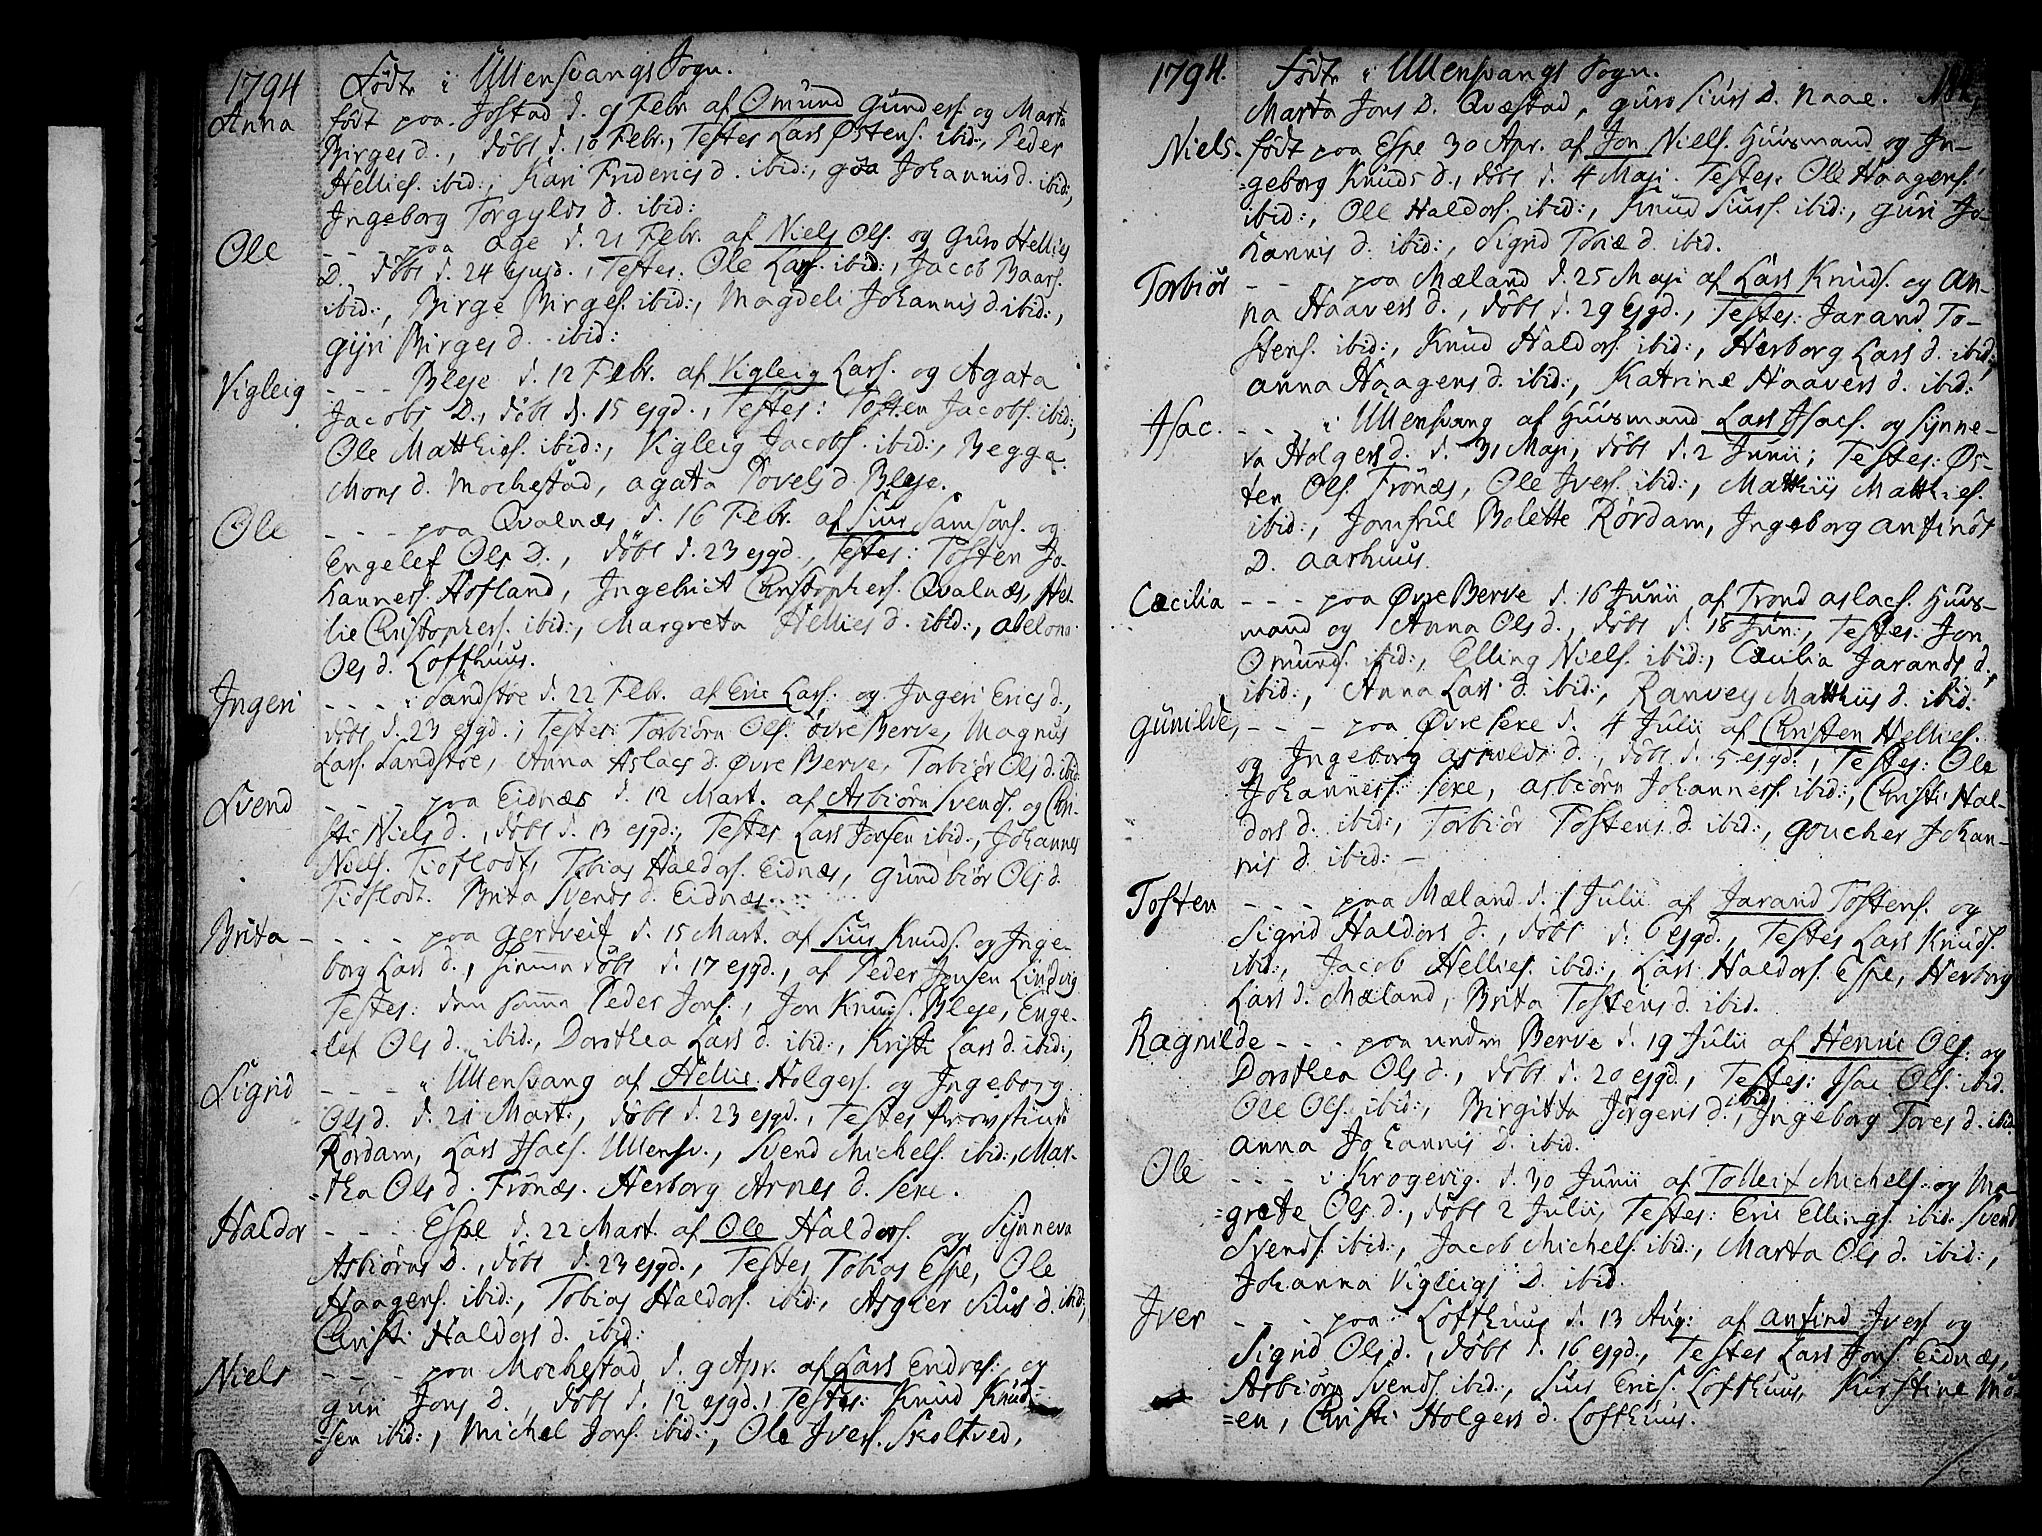 1794 Födte i Ullensvangs Sogn.
Anna født paa Jostad d. 9 Febr. af Omund Gunders. og Marta
Birges d., döbt d. 10 Febr., Testes Lars Østens. ibid:, Peder
Hellies. ibid:, Kari Friderics d. ibid:, Johannis d. ibid;
Ingeborg Torgylds d. ibid:
Ole - - paa Age d. 21 Febr. af Niels Ols. og Guro Hellies
D. döbt d. 24 ejusd., Testes: Ole Lars. ibid:, Jacob Baars.
ibid:, Birge Birges. ibid:, Magdeli Johannis d. ibid:,
Gyri Birges d. ibid:
Vigleig - - - Bleje d. 12 Febr. af Vigleig Lars. og Agata
Jacobs D., döbt d. 15 ejgd., Testes: Tosten Jacobs. ibid:,
Ole Matthies. ibid:, Vigleig Jacobs. ibid:, Begga
Mons d. Mochestad, Agata Povels d Bleje.
Ole - - - paa Qvalnæs d. 16 Febr. af Siur Samsons. og
Engelef Ols D., döbt d. 23 ejgd., Testes: Tosten Jo-
hanness. Hofland, Ingebrict Christophers. Qvalnæs, Hel-
lie Christophers. ibid:, Margreta Hellies d. ibid:, Adelona
Ols d. Lofthuus.
Ingeri - - - i Sandstøe d. 22 Febr. af Eric Lars. og Ingeri Erics d.,
döbt d. 23 ejgd., Testes: Torbiörn Ols. øvre Berve, Magnus
Lars. Sandstøe, Anna Aslacs d. Øvre Berve, Torbiör Ols d. ibid.
Svend - - - paa Eidnæs d. 12 Mart. af Asbiörn Svends. og Chri-
sti Niels d., döbt d. 13 ejgd:, Testes Lars Jonsen ibid:, Johannes
Niels. Tioflodt, Tobias Haldors. Eidnæs, Gundbiör Ols d.
Tioflodt. Brita Svends d. Eidnæs.
Brita - - - - paa Gertveit d. 15 Mart. af Siur Knuds. og Inge-
borg Lars d., döbt d. 17 ejgd., af Peder Jonsen Lindvig
Testes: den samme Peder Jons., Jon Knuds. Bleje, Enge-
lef Ols d. ibid:, Dorothea Lars d. ibid:, Kristi Lars d. ibid:,
Sigrid - - - i Ullensvang af Hellie Holgers. og Ingeborg
Ols d. d. 21 Mart:, döbt d. 23 ejgd., Testes Provstinde
Rördam, Lars Isacs. Ullensv., Svend Michels. ibid:, Mar-
tha Ols d. Frönæs. Herborg Arnes d. Sexe.
Haldor - - - Espe d. 22 Mart. af Ole Haldors. og Synneva
Asbiörns D., döbt d. 23 ejgd., Testes Tobias Espe, Ole
Haagens. ibid:, Tobias Haldors. ibid:, Asgier Siurs d. ibid;
Christi Haldors d. ibid:
Niels - - - paa Mochestad d. 9 Apr. af Lars Endres. og
Guri Jons D., döbt d. 12 ejgd., Testes: Knud Knud-
sen ibid:, Michel Jons. ibid:, Ole Ivers. Skeltved,
1794. Födte i Ullensvangs Sogn.
Marta Jons D. Qvæstad, Guro Siurs D. Naae.
Niels. født paa Espe 30 Apr. af Jon Niels. Huusmand og In-
geborg Knuds d., döbt d. 4 Maji. Testes: Ole Haagens.
ibid:, Ole Haldors. ibid:, Knud Siurs. ibid:, Guri Jo-
hannis d. ibid:, Sigrid Tobiæ d. ibid.
Torbiör - - paa Mæland d. 25 Maji af Lars Knuds. og An-
na Haavers d., döbt d. 29 ejgd., Testes: Jarand To-
stens. ibid:, Knud Haldors. ibid:, Herborg Lars d. ibid;
Anna Haagens d. ibid:, Katrine Haavers d. ibid:
Isac. - - - i Ullensvang af Huusmand Lars Isacs. og Synne-
va Holgers d. d. 31 Maji, döbt d. 2 Junii; Testes: Øs-
ten Ols. Frönæs, Ole Ivers. ibid:, Matthiis Matthies.
ibid:, Jomfrue Bolette Rördam, Ingeborg Anfinds
D. Aarhuus.
Cæcilia - - - paa Øvre Berve d. 16 Junii af Trond Aslacs. Huus-
mand og Anna Ols d., döbt d. 18 Jun:, Testes: Jon
Omunds. ibid:, Elling Niels. ibid:, Cæcilia Jarands d.,
ibid:, Anna Lars d. ibid:, Ranvey Matthiis d. ibid:
Gunilde, - - - paa Øvre Sexe d. 4 Julii af Christen Hellies.
og Ingeborg d., döbt d. 5 ejgd., Testes: Ole
Johanness. Sexe, Asbiörn Johanness. ibid:, Christi Hal-
dors d. ibid:, Torbiör Tostens d. ibid:, Goucher Johan-
nis d. ibid: -
Tosten - - - paa Mæland d. 1 Julii af Jarand Tostens. og
Sigrid Haldors d., döbt d: 6 ejgd., Testes Lars Knuds.
ibid:, Jacob Hellies. ibid:, Lars Haldors. Espe, Herborg
Lars d. Mæland, Brita Tostens d. ibid.
Ragnilde - - - paa unden Berve d. 19 Julii af Henric Ols. og
Dorothea Ols d., döbt d. 20 ejgd., Testes: Isac Ols. ibid.
Ole Ols. ibid:, Birgitta Jörgens d. ibid:, Ingeborg Tores d. ibid.
Anna Johannis D. ibid.
Ole - - - i Krogevig d. 30 Junii af Tolleif Michels. og Ma-
grete Ols d., döbt 2 Julii, Testes: Eric Ellings. ibid: Svend
Svends. ibid:, Jacob Michels. ibid:, Marta Ols d. ibid:,
Johanna Vigleigs D. ibid.
Iver - - - paa Lofthuus d. 13 Aug: af Anfind Ivers. og
Sigrid Ols d., döbt d. 16 ejgd., Testes Lars Jons. Eidnæs,
Asbiörn Svends. ibid:, Siur Erics. Lofthuus, Kirstine Mö-
en, Christi Holgers d. Lofthuus.